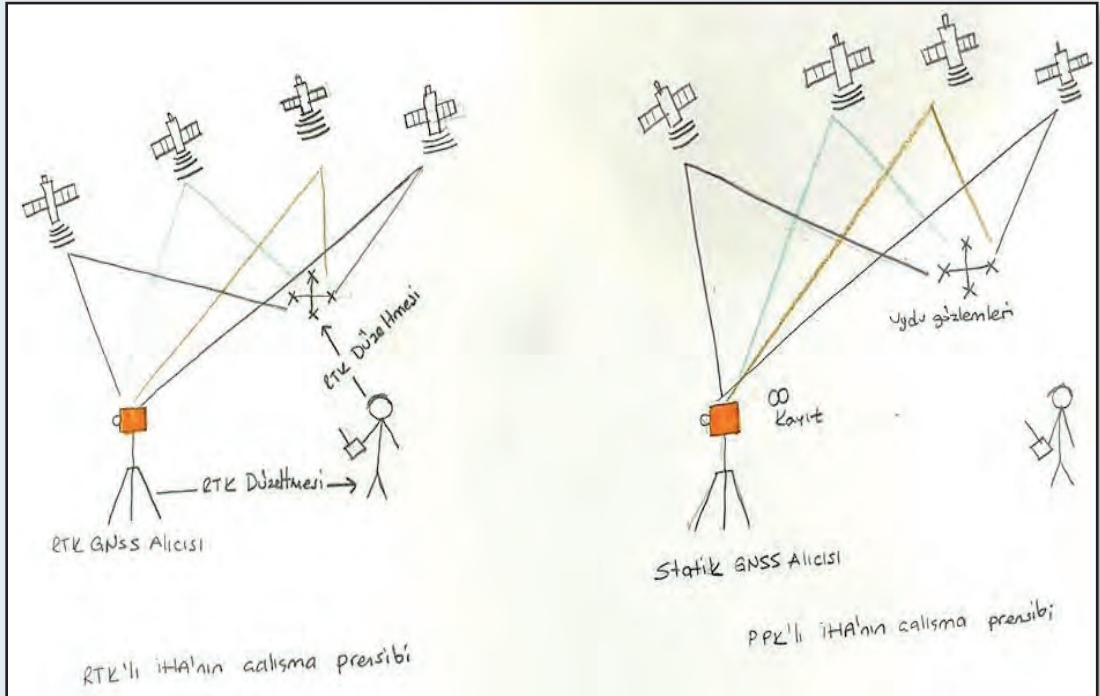 RTK Düzeltmesi
RTK Düzeltmesi
RTK GNSS Alıcısı
RTK'lı İHA'nın çalışma prensibi
Uydu gözlemleri
Kayıt
Statik GNSS Alıcısı
PPK'lı İHA'nın çalışma prensibi